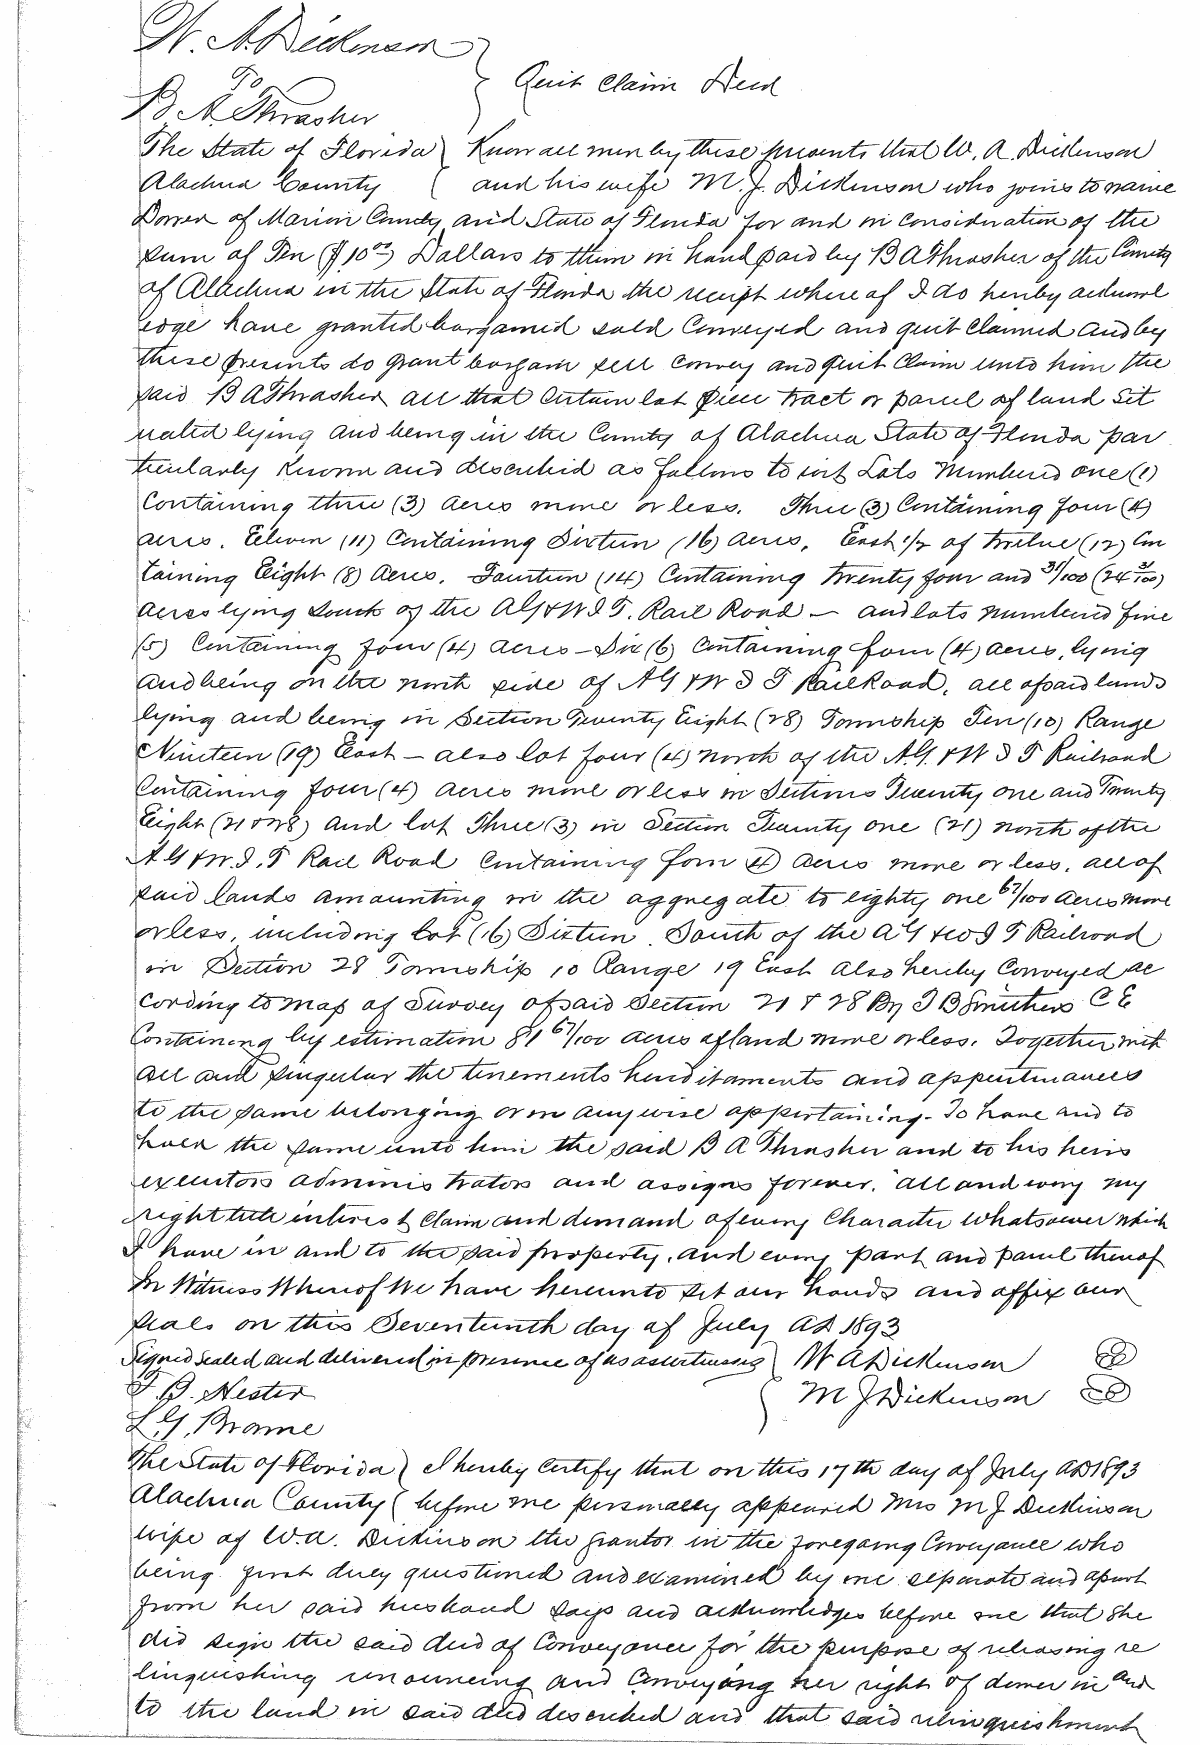 W. A. Dickinson
To
Quit Claim Deed
B. A. Thrasher
The State of Florida Know all men by these presents that W. A. Dickinson
Alachua County and his wife M. J. Dickinson who joins to
Dower of Marion County and State of Florida for and in consideration of the
sum of Ten ($10 00) Dollars to them in hand paid by B A Thrasher of the County
of Alachua in the State of Florida the receipt where of I do hereby acknowl
edge have granted bargained sold Conveyed and quit Claimed and by
these presents do grant bargain sell convey and Quit Claim unto him the
said B A Thrasher all that Certain lot piece tract or parcel of land Sit
uated lying and being in the County of Alachua State of Florida par
ticularly Known and described as follows to wit Lots Numbered one (1)
Containing three (3) Acres more or less. Three (3) Containing four (4)
acres. Eleven (11) Containing Sixteen (16) Acres, East 1/2 of twelve (12) Con
taining Eight (8) Acres. Fourteen (14) Containing twenty four and 31/100 (24 31/100)
acres lying South of the A G & W I T. Rail Road — and lots numbered five
(5) Containing four (4) acres — Six (6) Containing four (4) acres, lying
and being on the north side of A G & W I T Rail Road, all of said lands
lying and being in Section Twenty Eight (28) Township Ten (10) Range
Nineteen (19) East — also lot four (4) north of the A.G. & W I T Railroad
Containing four (4) acres more or less in Sections Twenty one and Twenty
Eight (21 & 28) and lot Three (3) in Section Twenty one (21) north of the
A G & W. I. T Rail Road Containing four (4) acres more or less. all of
said lands amounting in the aggregate to eighty one 67/100 acres more
or less, including lot (16) Sixteen South of the A G & W I T Railroad
in Section 28 Township 10 Range 19 East also hereby Conveyed ac
cording to map of Survey of said Section 21 & 28 By C E
Containing by estimation 81 67/100 acres of land more or less. Together with
all and singular the tenements hereditaments and appurtenances
to the same belonging or in anywise appertaining. To have and to
hold the same unto him the said B A Thrasher and to his heirs
executors administrators and assigns forever. all and every my
right title interest Claim and demand of every Character whatsoever which
I have in and to the said property, and every part and parcel thereof
In Witness Whereof We have hereunto set our hands and affix our
seals on this Seventeenth day of July AD 1893
Signed sealed and delivered in presence of us as witnesses W A Dickinson
B. Hester M J Dickinson
L. G.
The State of Florida I hereby Certify that on this 17th day of July AD 1893
Alachua County before me personally appeared Mrs M J Dickinson
wife of W. A. Dickinson the grantor in the foregoing Conveyance who
being first duly questioned and examined by me separate and apart
from her said husband says and acknowledges before me that she
did sign the said deed of Conveyance for the purpose of releasing re
linquishing renouncing and Conveying her right of dower in and
to the land in said deed described and that said relinquishment